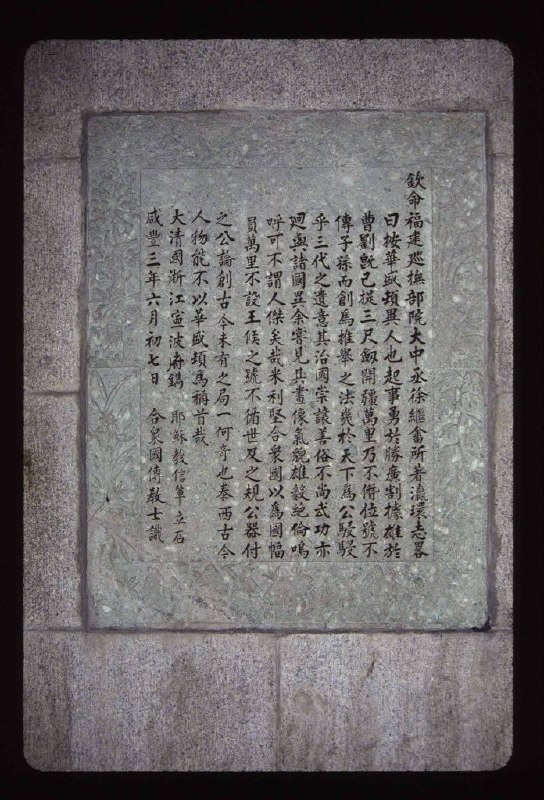 欽命福建巡撫部院大中丞徐繼畬所著瀛環志畧
曰按華盛頓異人也起事勇於勝廣割據雄於
曹劉旣已提三尺劔開疆萬里乃不僭位號不
傳子孫而創爲推舉之法幾於天下爲公駸駸
乎三代之遺意其治國崇讓善俗不尚武功亦
迥與諸國異余嘗見其畫像氣貌雄毅絕倫嗚
呼可不謂人傑矣哉米利堅合衆國以爲國幅
員萬里不設王侯之號不循世及之規公器付
之公論創古今未有之局一何奇也泰西古今
人物能不以華盛頓爲稱首哉
大清國浙江寧波府鐫 耶穌教信輩立石
咸豐三年六月初七日 合衆國傳教士識